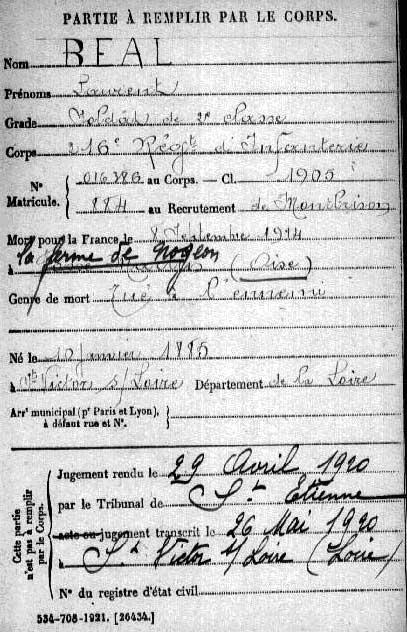 PARTIE À REMPLIR PAR LE CORPS.
Nom BEAL
Prénoms Laurent
Grade Soldat de 2e classe
Corps 216e Régt d'Infanterie
N° Matricule. { 016386 au Corps. — Cl. 1905
884 au Recrutement de Montbrison
Mort pour la France le 8 Septembre 1914
la ferme de Nogeon
à (Oise)
Genre de mort Tué à l'ennemi
Né le 10 janvier 1885
à St Victor s/Loire Département de la Loire
Arrt municipal (pr Paris et Lyon), à défaut rue et N°. {
Cette partie n'est pas à remplir par le Corps.
Jugement rendu le 29 Avril 1920
par le Tribunal de St Etienne
acte ou jugement transcrit le 26 Mai 1920
à St Victor s/Loire (Loire)
N° du registre d'état civil
534-708-1921. [26434.]